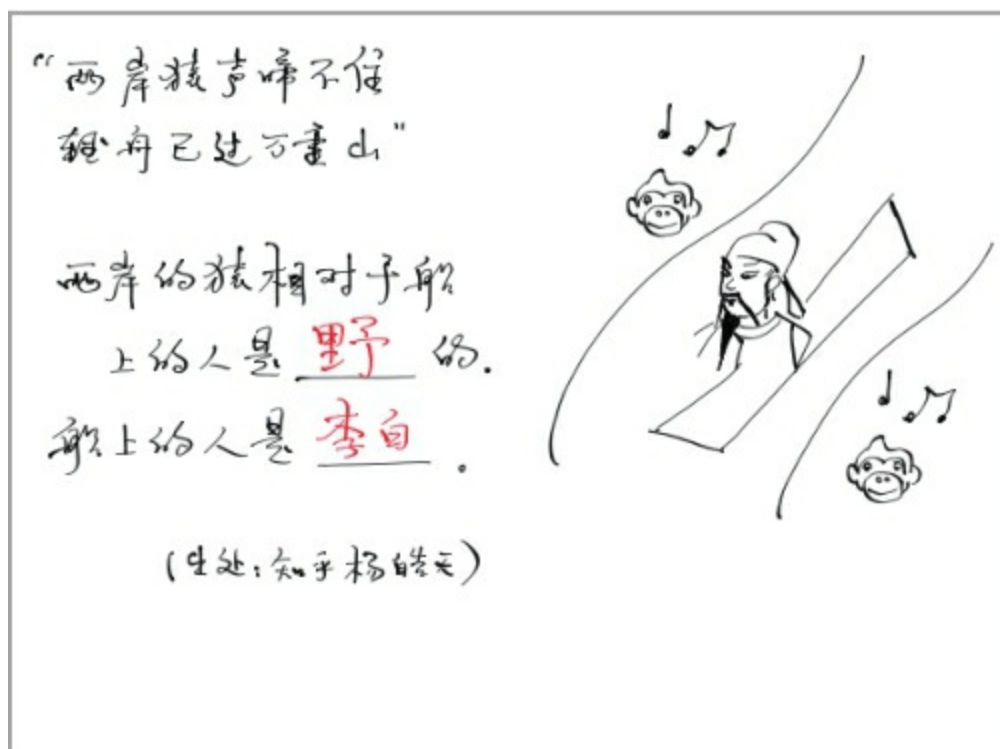 “两岸猿声啼不住
轻舟已过万重山”
两岸的猿相对于船
上的人是 野 的.
船上的人是 李白 。
(出处:知乎杨皓天)